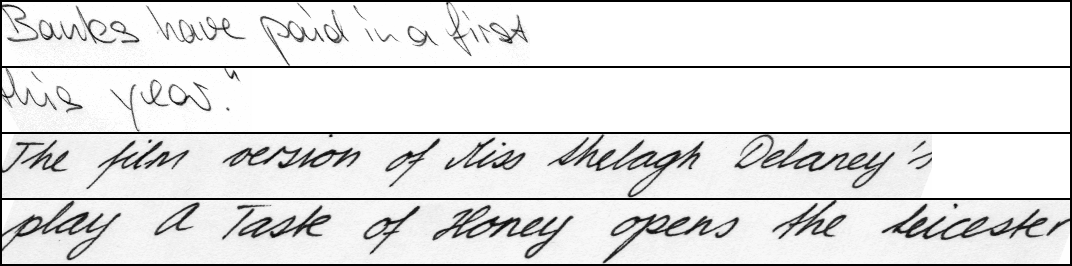 Banks have paid in a first
this year."
The film version of Miss Shelagh Delaney's
play A Taste of Honey opens the Leicester